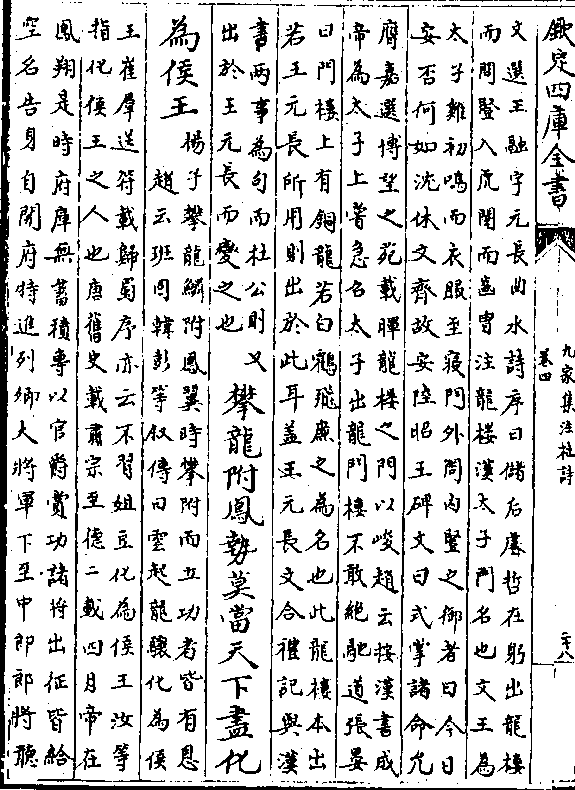 欽定四庫全書
九家集注杜詩
卷四
二十八
文選王融字元長曲水詩序曰儲后睿哲在躬出龍樓
而問豎入虎闈而齒胄注龍樓漢太子門名也文王為
太子雞初鳴而衣服至寢門外問内豎之御者曰今日
安否何如沈休文齊故安陸昭王碑文曰式掌諸命允
膺嘉選博望之苑載暉龍樓之門以峻趙云按漢書成
帝為太子上嘗急召太子出龍門樓不敢絶馳道張晏
曰門樓上有銅龍若白鶴飛廉之為名也此龍樓本出
若王元長所用則出於此耳葢王元長文合禮記與漢
書兩事為句而杜公則又
出於王元長而變之也
攀龍附鳳勢莫當天下盡化
為侯王
楊子攀龍鱗附鳳翼時攀附而立功者皆有恩
趙云班固韓彭等叙傳曰雲起龍驤化為侯
王崔羣送符載歸蜀序亦云不習俎豆化為侯王汝等
指化侯王之人也唐舊史載肅宗至德二載四月帝在
鳳翔是時府庫無蓄積專以官爵賞功諸將出征皆給
空名告身自開府特進列卿大將軍下至中郎郎將聽